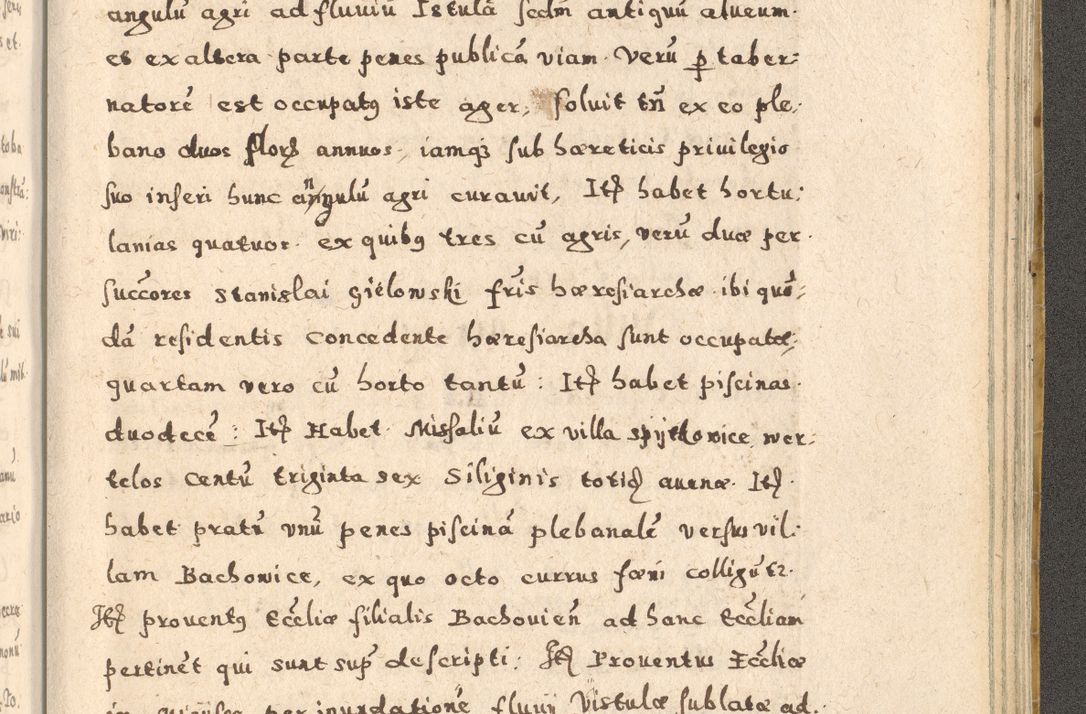 angulũ agri ad fluuiũ Istulã secdm̃ antiquũ alueum.
et ex altera parte penes publicã viam. Verũ p̱ taber-
natorẽ est occupatꝯ iste ager, soluit tñ ex eo ple-
bano duos florꝭ annuos, iamqꝫ sub hæreticis priuilegio
suo inseri hunc angulũ agri curauit, Itꝭ habet hortu-
lanias quatuor. ex quibꝯ tres cũ agris, verũ duæ per
succ̃ores Stanislai Gielowski fr̃is hæresiarchæ ibi quõ-
dã residentis concedente hæresiarcha sunt occupatæ,
quartam vero cũ horto tantũ: Itꝭ habet piscinas.
duodecẽ: Itꝭ Habet Missaliũ ex villa Spytkowice wer-
telos centũ triginta sex Siliginis totiꝺ auenæ. Itꝭ.
habet pratũ vnũ penes piscinã plebanalẽ versus vil-
lam Bachowice, ex quo octo currus fœni colligũtr.
Itꝭ prouentꝯ Ecc̃liæ filialis Bachouieñ ad hanc Ecc̃liam
pertinẽt qui sunt sup̃ descripti: Itꝭ Prouentus Ecc̃liæ
per inundationẽ fluuii Vistulæ sublatæ ad.